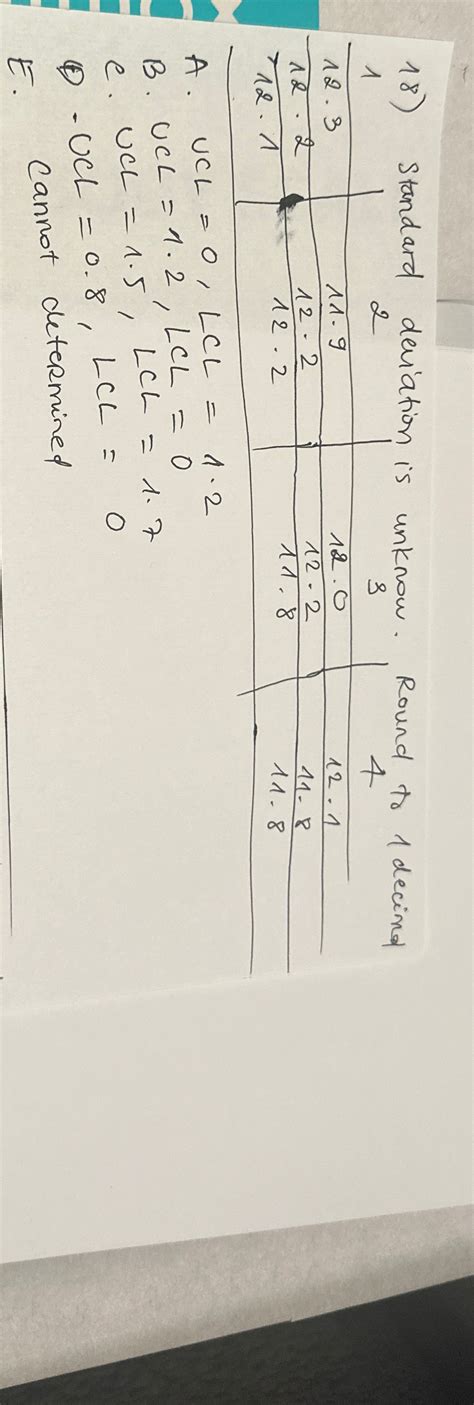 18) Standard deviation is unknow. Round to 1 decimal
1 2 3 4
12.3 11.9 12.0 12.1
12.2 12.2 12.2 11.8
12.1 12.2 11.8 11.8
A. UCL = 0, LCL = 1.2
B. UCL = 1.2, LCL = 0
C. UCL = 1.5, LCL = 1.7
D - UCL = 0.8, LCL = 0
E. Cannot determined